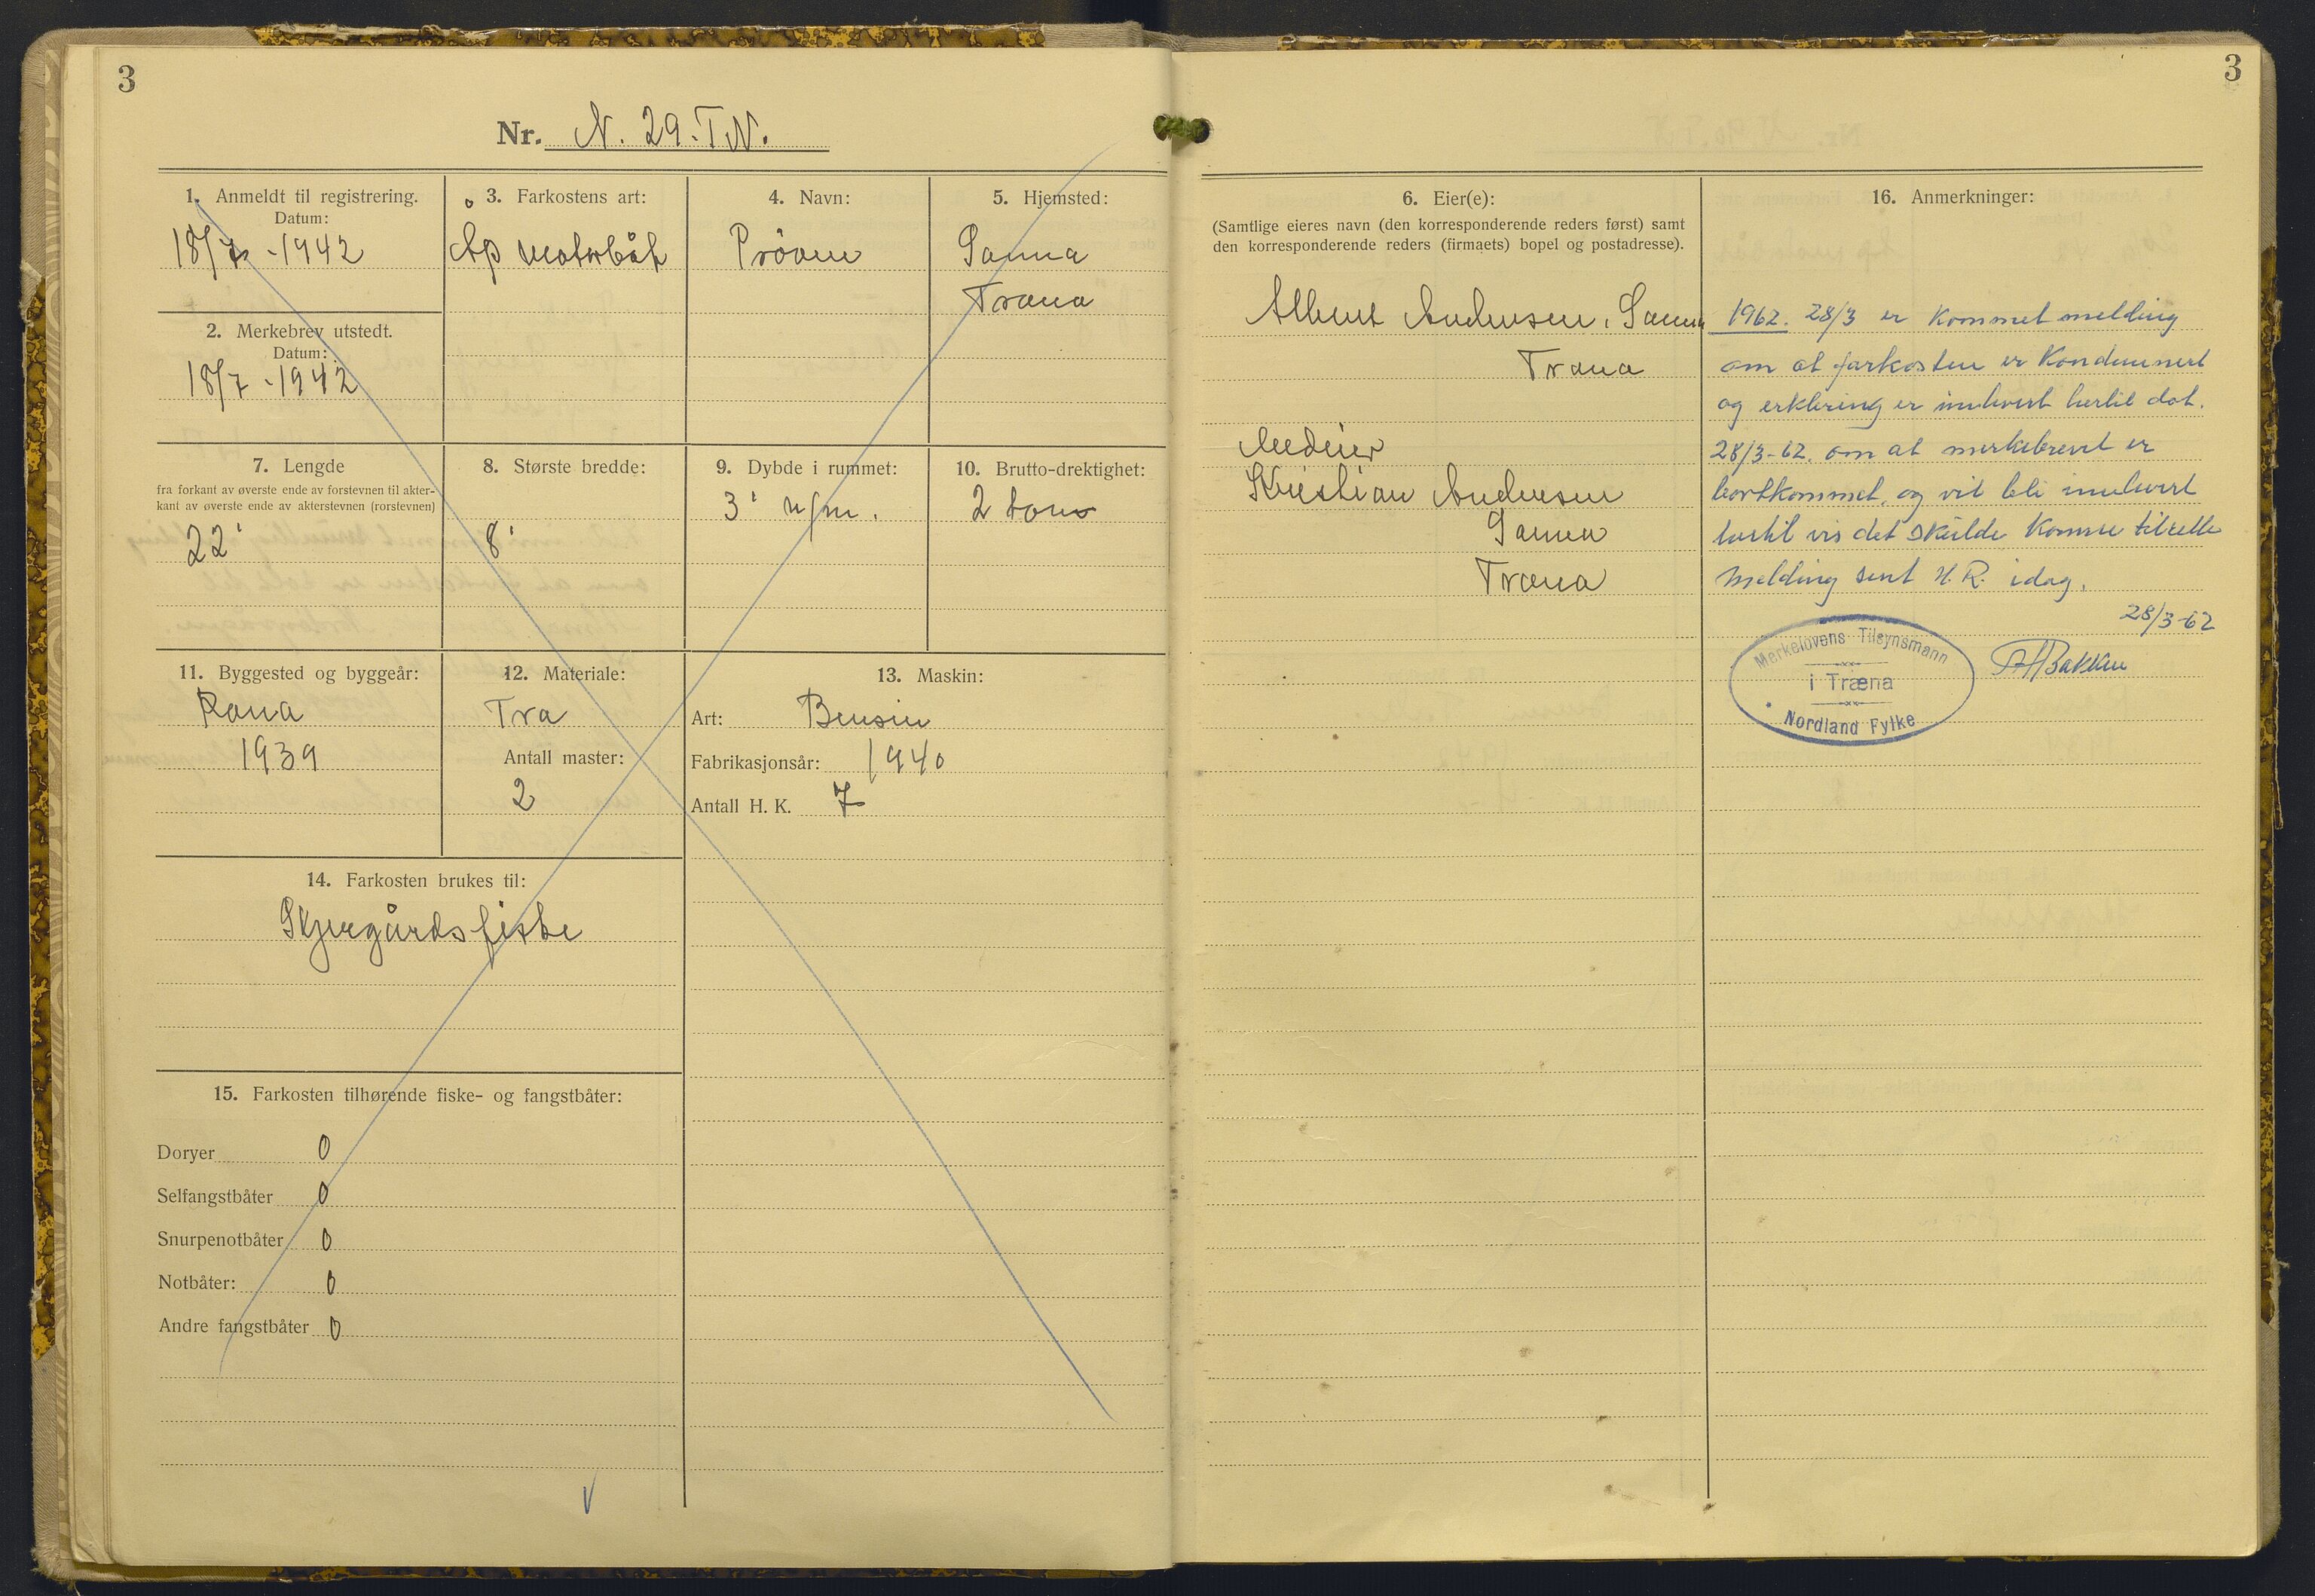 3
Nr. N. 29. T.N.
1. Anmeldt til registrering.
Datum:
18/7 -1942
2. Merkebrev utstedt.
Datum:
18/7 -1942
3. Farkostens art:
Åp motorbåt
4. Navn:
Pröven
5. Hjemsted:
Sanna
Træna
7. Lengde
fra forkant av øverste ende av forstevnen til akter-
kant av øverste ende av akterstevnen (rorstevnen)
22'
8. Største bredde:
8'
9. Dybde i rummet:
3' u/m.
10. Brutto-drektighet:
2 tons
11. Byggested og byggeår:
Rana
1939
12. Materiale:
Tra
Antall master:
2
13. Maskin:
Art: Bensin
Fabrikasjonsår: 1940
Antall H. K. 7
14. Farkosten brukes til:
Skjergårdsfiske
15. Farkosten tilhørende fiske- og fangstbåter:
Doryer 0
Selfangstbåter 0
Snurpenotbåter 0
Notbåter: 0
Andre fangstbåter 0
3
6. Eier(e):
(Samtlige eieres navn (den korresponderende reders først) samt
den korresponderende reders (firmaets) bopel og postadresse).
Albert Andersen, Sanna
Træna
Medeier
Kristian Andersen
Sanna
Træna
16. Anmerkninger:
1962. 28/3 er kommet melding
om at farkosten er Kondemnert
og erklering er innlevert hertil dat.
28/3-62. om at merkebrevet er
bortkommet, og vil bli innlevert
hertil vis det skulde komme tilrette
Melding sent H.R. idag.
28/3-62
Merkelovens Tilsynsmann
i Træna
Nordland Fylke
Bakken